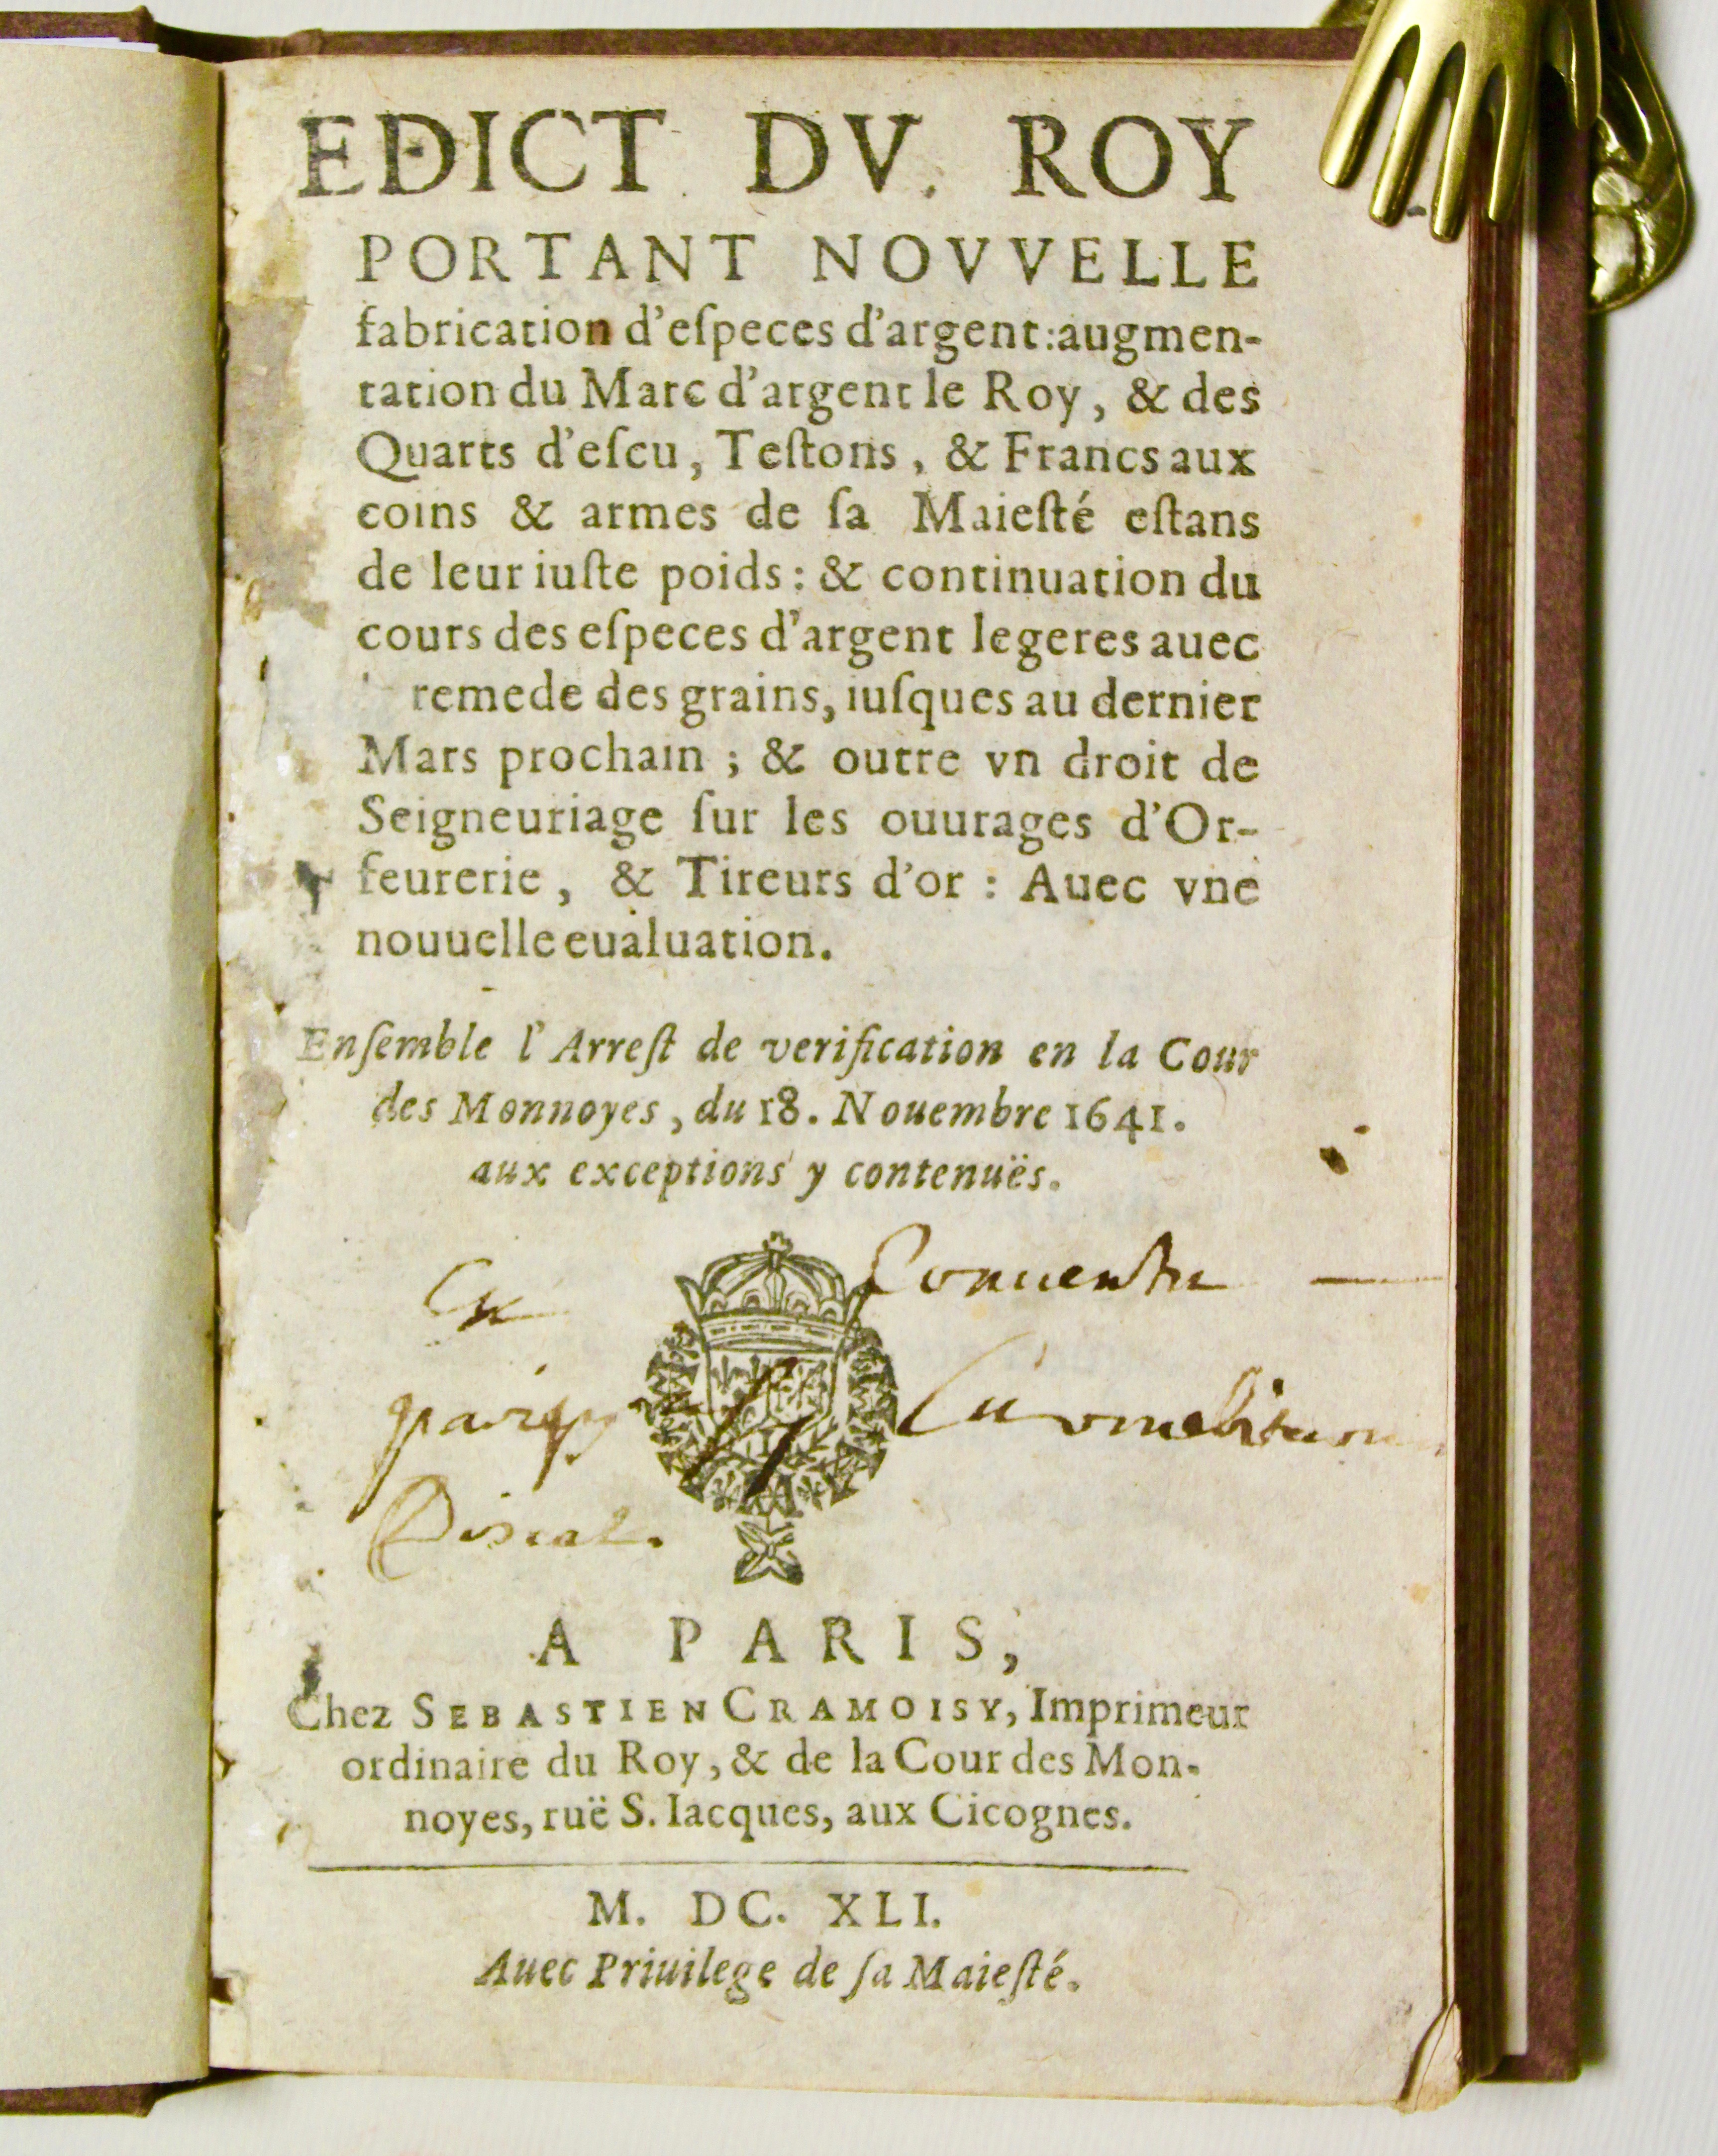 EDICT DV ROY
PORTANT NOVVELLE
fabrication d'eſpeces d'argent: augmen-
tation du Marc d'argent le Roy, & des
Quarts d'eſcu, Teſtons, & Francs aux
coins & armes de ſa Maieſté eſtans
de leur iuſte poids: & continuation du
cours des eſpeces d'argent legeres auec
remede des grains, iuſques au dernier
Mars prochain; & outre vn droit de
Seigneuriage ſur les ouurages d'Or-
feurerie, & Tireurs d'or: Auec vne
nouuelle eualuation.
Enſemble l'Arreſt de verification en la Cour
des Monnoyes, du 18. Nouembre 1641.
aux exceptions y contenuës.
Ex Conuentu
A PARIS,
Chez SEBASTIEN CRAMOISY, Imprimeur
ordinaire du Roy, & de la Cour des Mon-
noyes, ruë S. Iacques, aux Cicognes.
M. DC. XLI.
Auec Priuilege de ſa Maieſté.